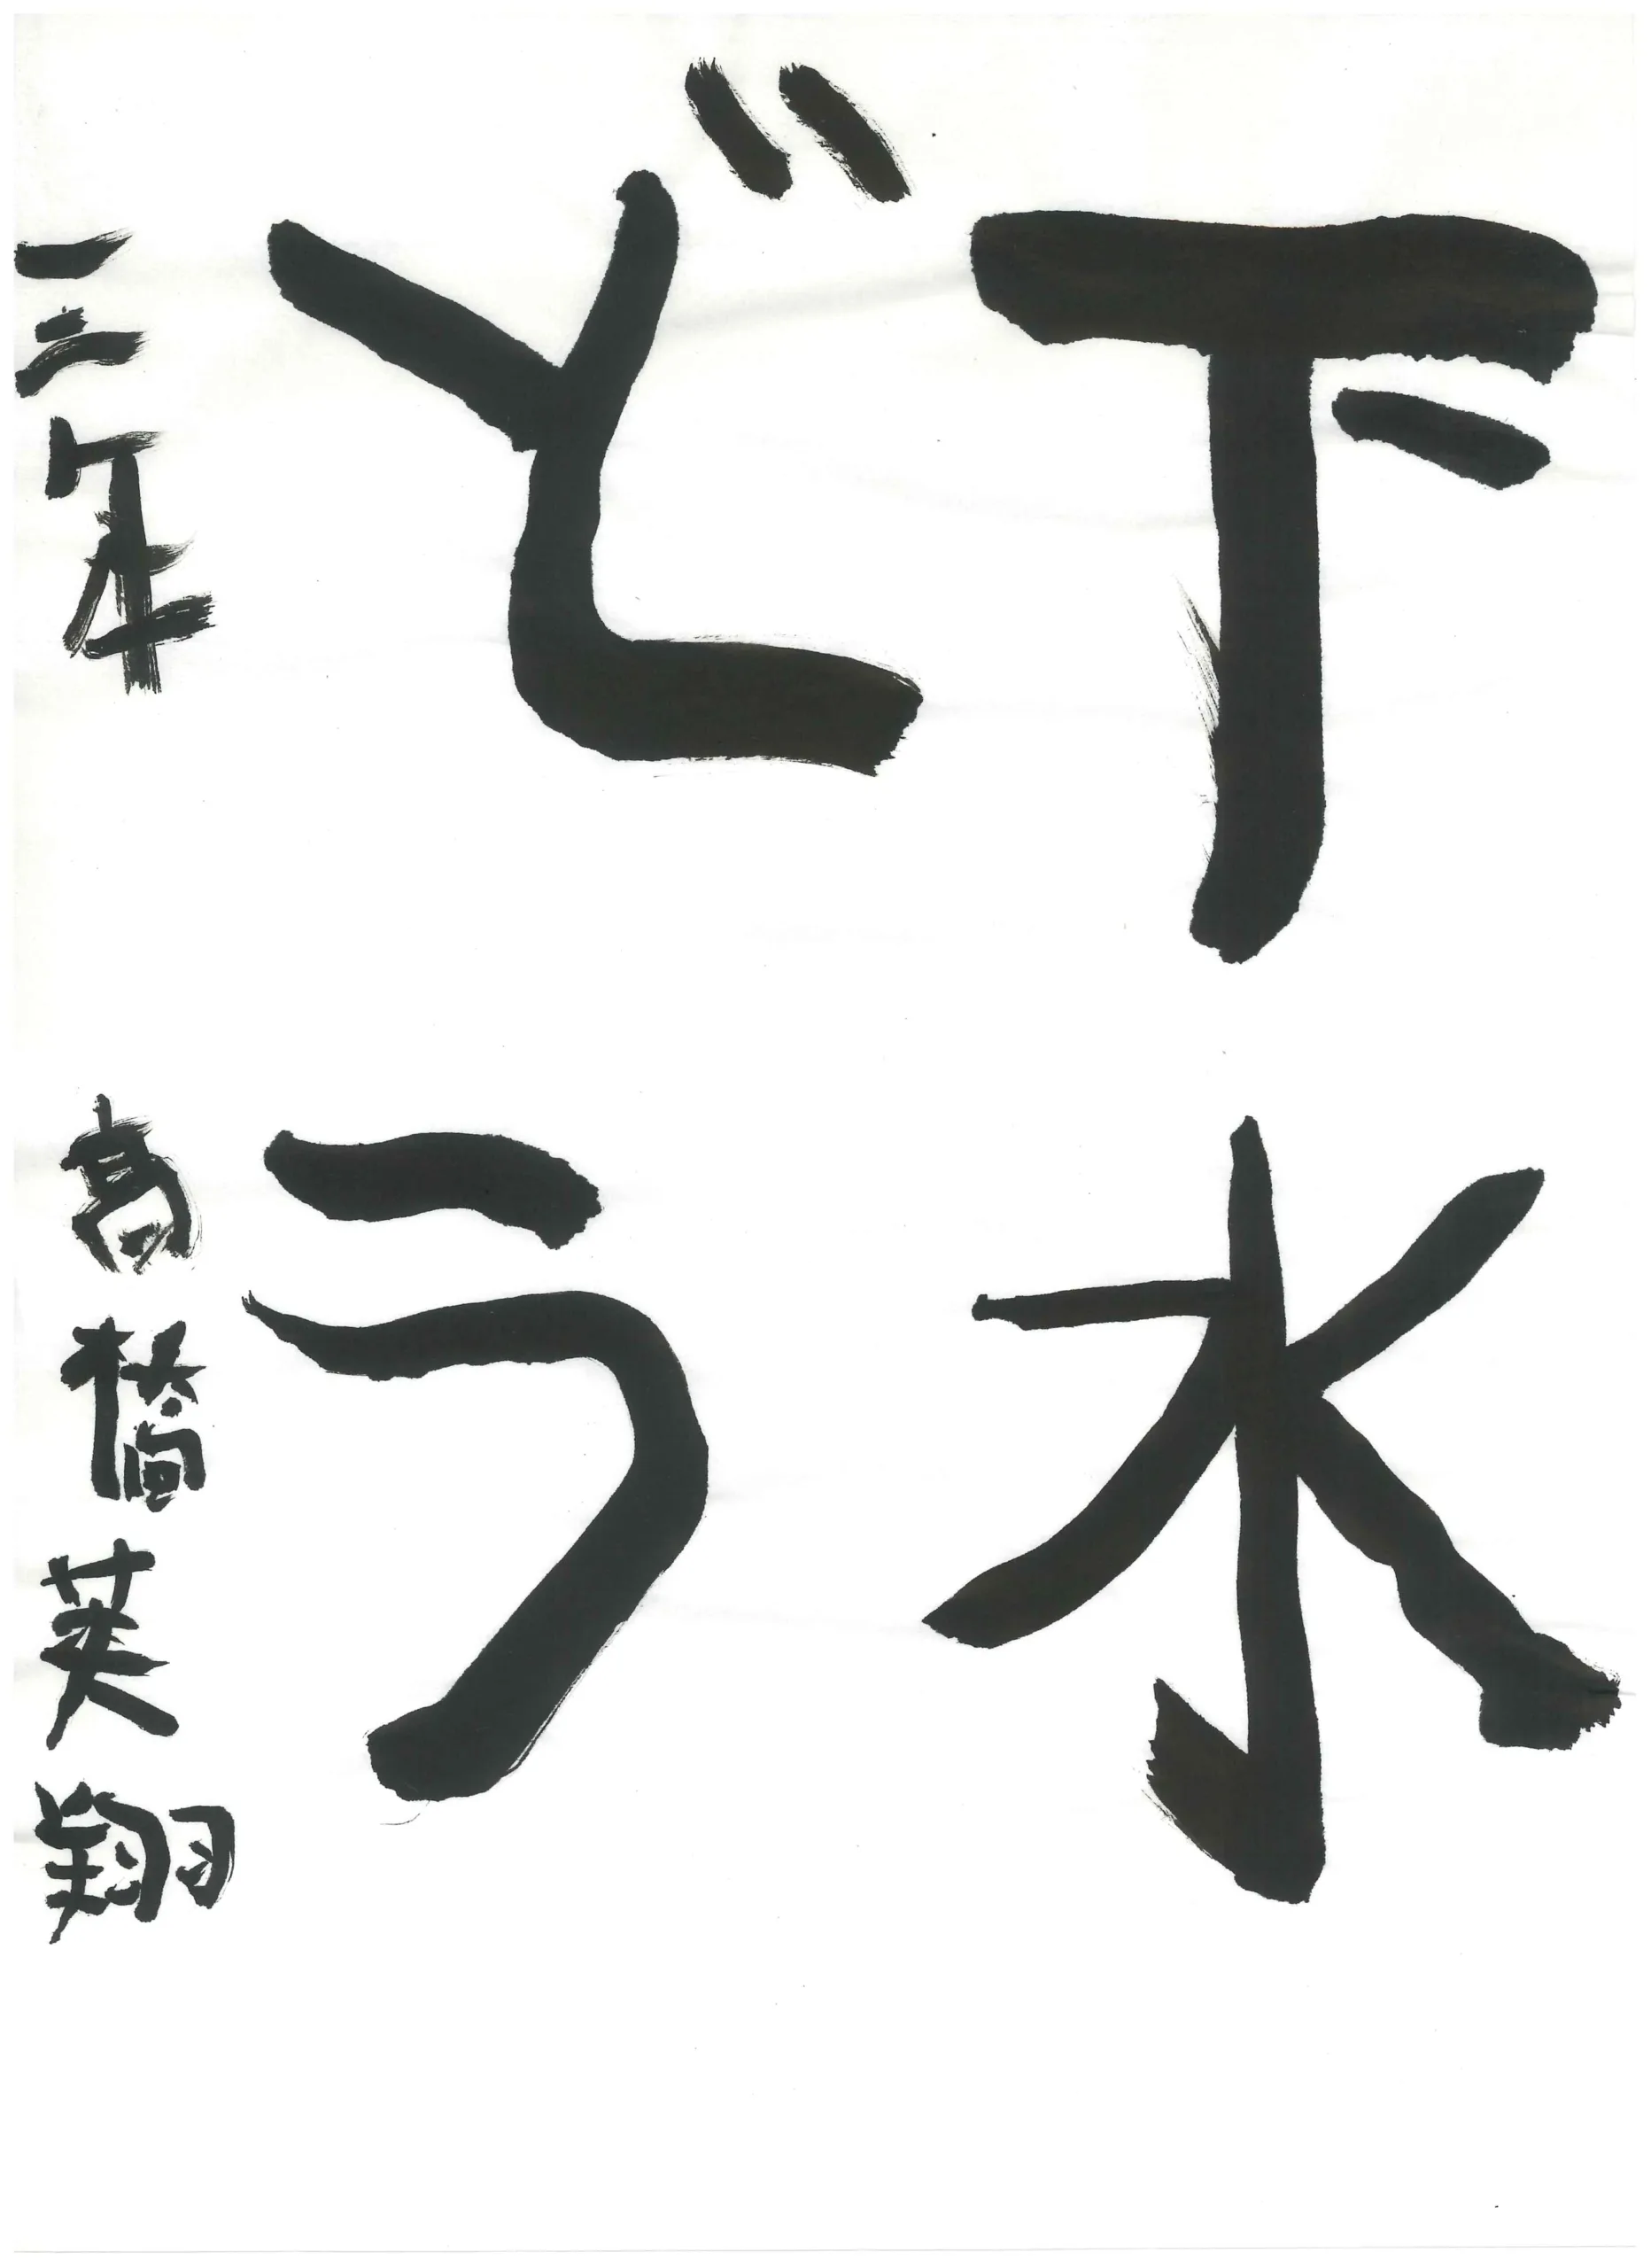 下水
どう
三年 高橋芙翔